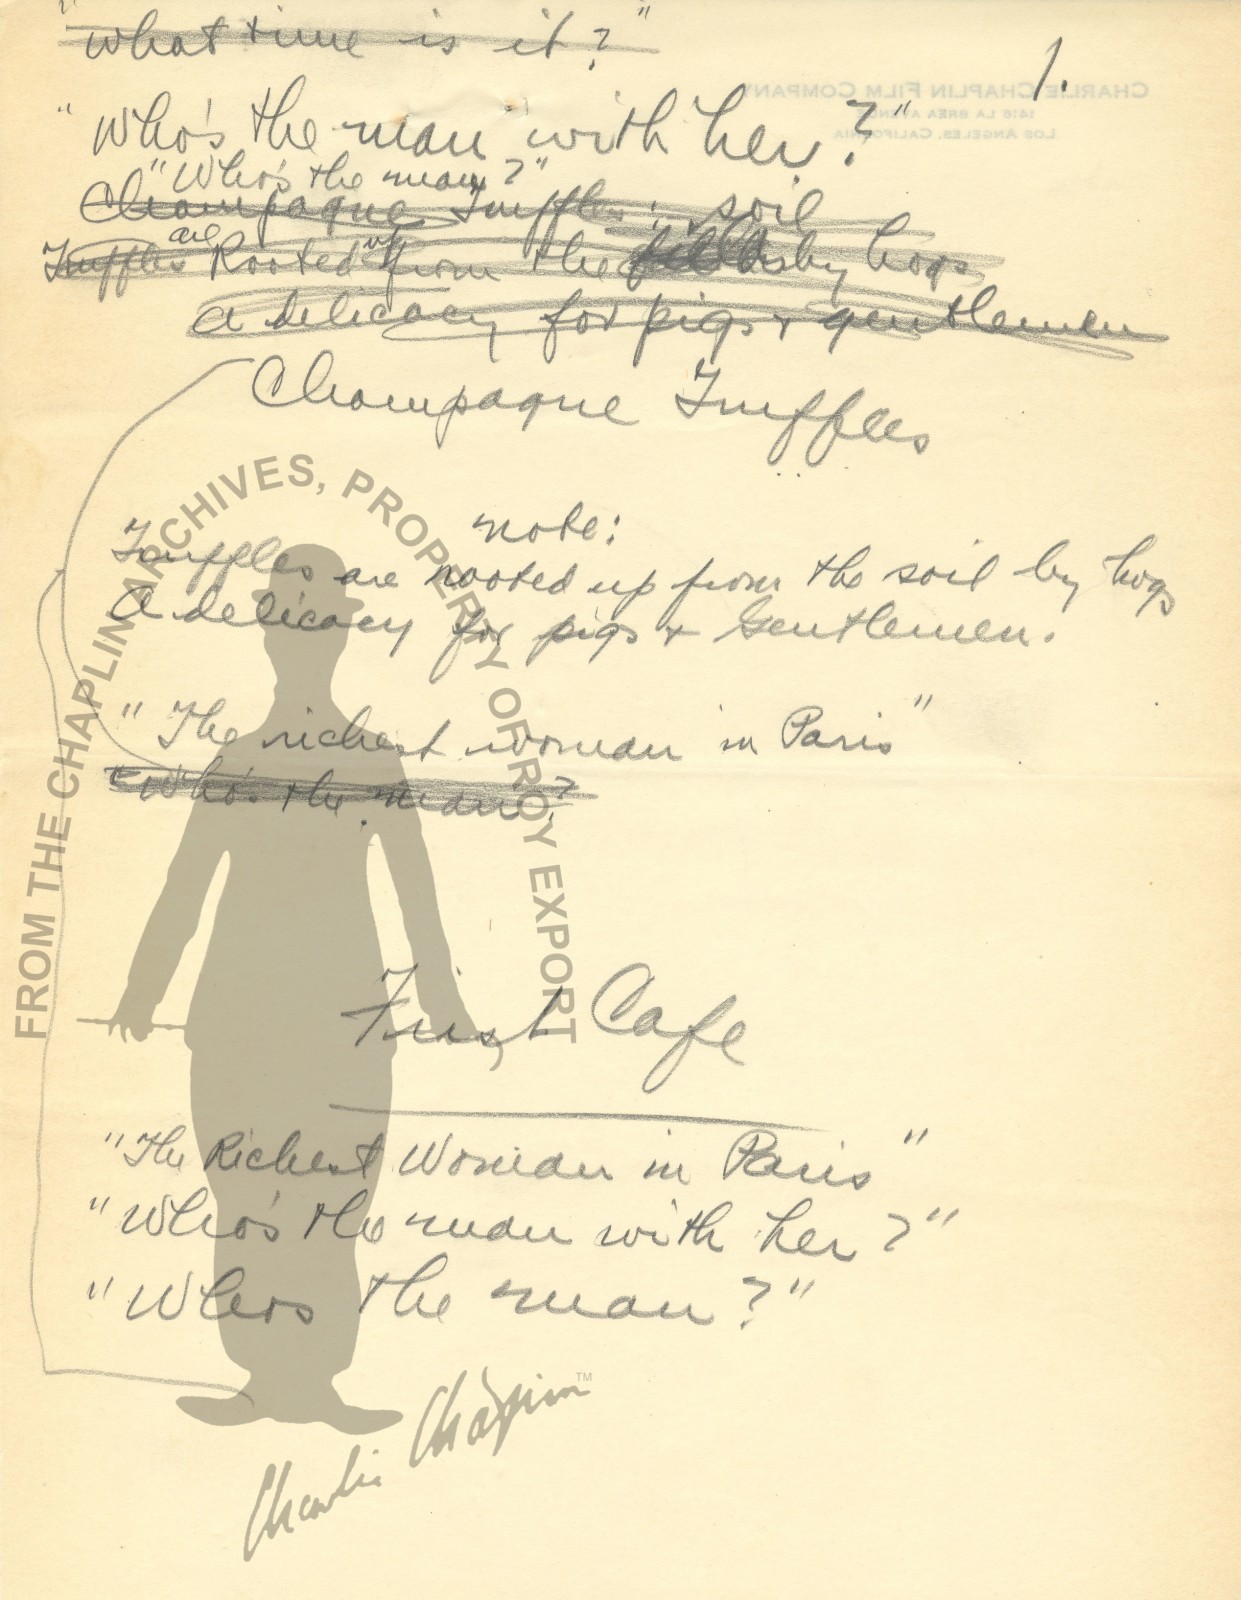 "What time is it?"
1.
CHARLIE CHAPLIN FILM COMPANY
1416 LA BREA AVENUE
LOS ANGELES, CALIFORNIA
"Who's the man with her?"
"Who's the man?"
Champagne Truffles. soil
Truffles are Rooted up from the by hogs
a delicacy for pigs & gentlemen
Champagne Truffles
note:
Truffles are rooted up from the soil by hogs
A delicacy for pigs & Gentlemen.
"The richest woman in Paris"
"Who's the man"?
First Cafe
"The Richest Woman in Paris"
"Who's the man with her?"
"Whos the man?"
FROM THE CHAPLIN ARCHIVES, PROPERTY OF ROY EXPORT
Charlie Chaplin™